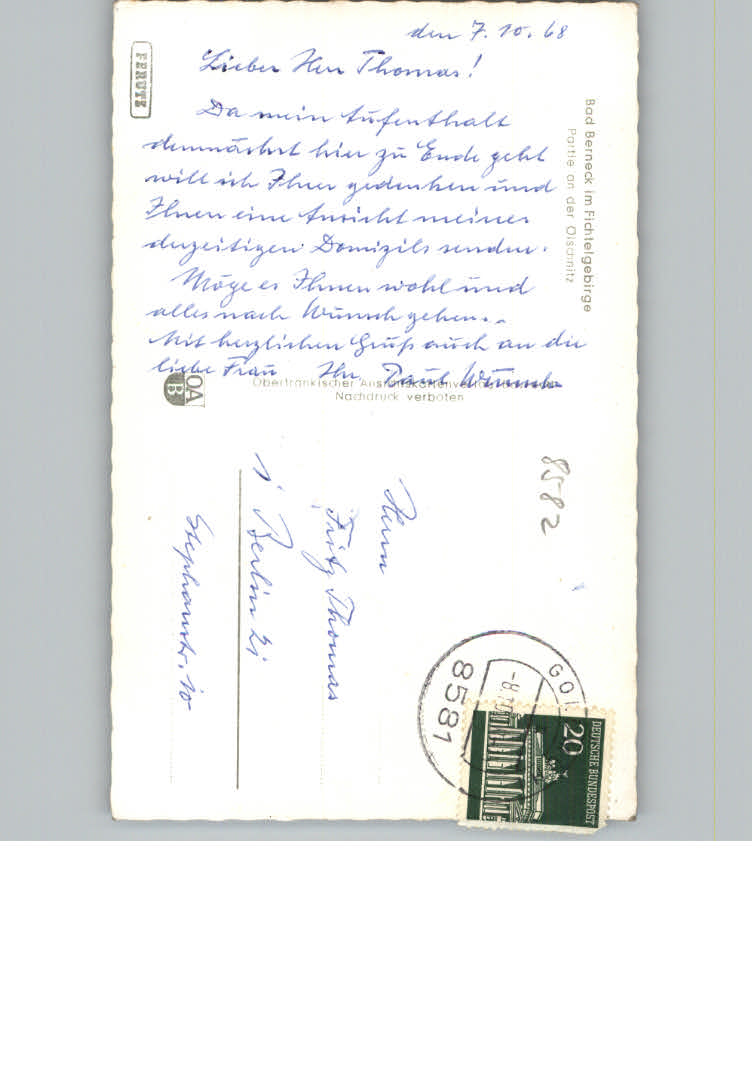 den 7.10.68
Lieber Herr Thomas!
Da mein Aufenthalt
demnächst hier zu Ende geht
will ich Ihrer gedenken und
Ihnen eine Ansicht meines
derzeitigen Domizils senden.
Möge es Ihnen wohl und
alles nach Wunsch gehen.
Mit herzlichen Gruß auch an die
liebe Frau Ihr Paul Wunsch
PERUTZ
Bad Berneck im Fichtelgebirge
Partie an der Ölschnitz
OA
B
Oberfränkischer Ansichtskartenverlag
Nachdruck verboten
8582
Herrn
Fritz Thomas
1 Berlin 21
Stephanstr. 10
GOL
-8.10
8581
20
DEUTSCHE BUNDESPOST